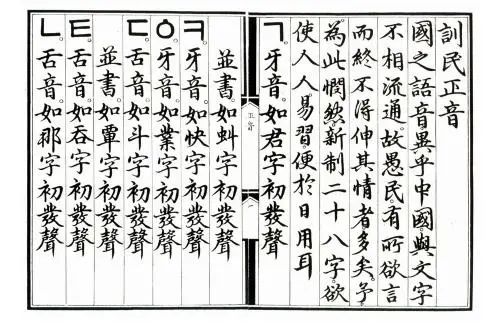 訓民正音
國之語音。異乎中國。與文字
不相流通。故愚民有所欲言
而終不得伸其情者多矣。予
為此憫然。新制二十八字。欲
使人人易習。便於日用耳
ㄱ。牙音。如君字初發聲
正音
並書。如虯字初發聲
ㅋ。牙音。如快字初發聲
ㆁ。牙音。如業字初發聲
ㄷ。舌音。如斗字初發聲
並書。如覃字初發聲
ㅌ。舌音。如呑字初發聲
ㄴ。舌音。如那字初發聲